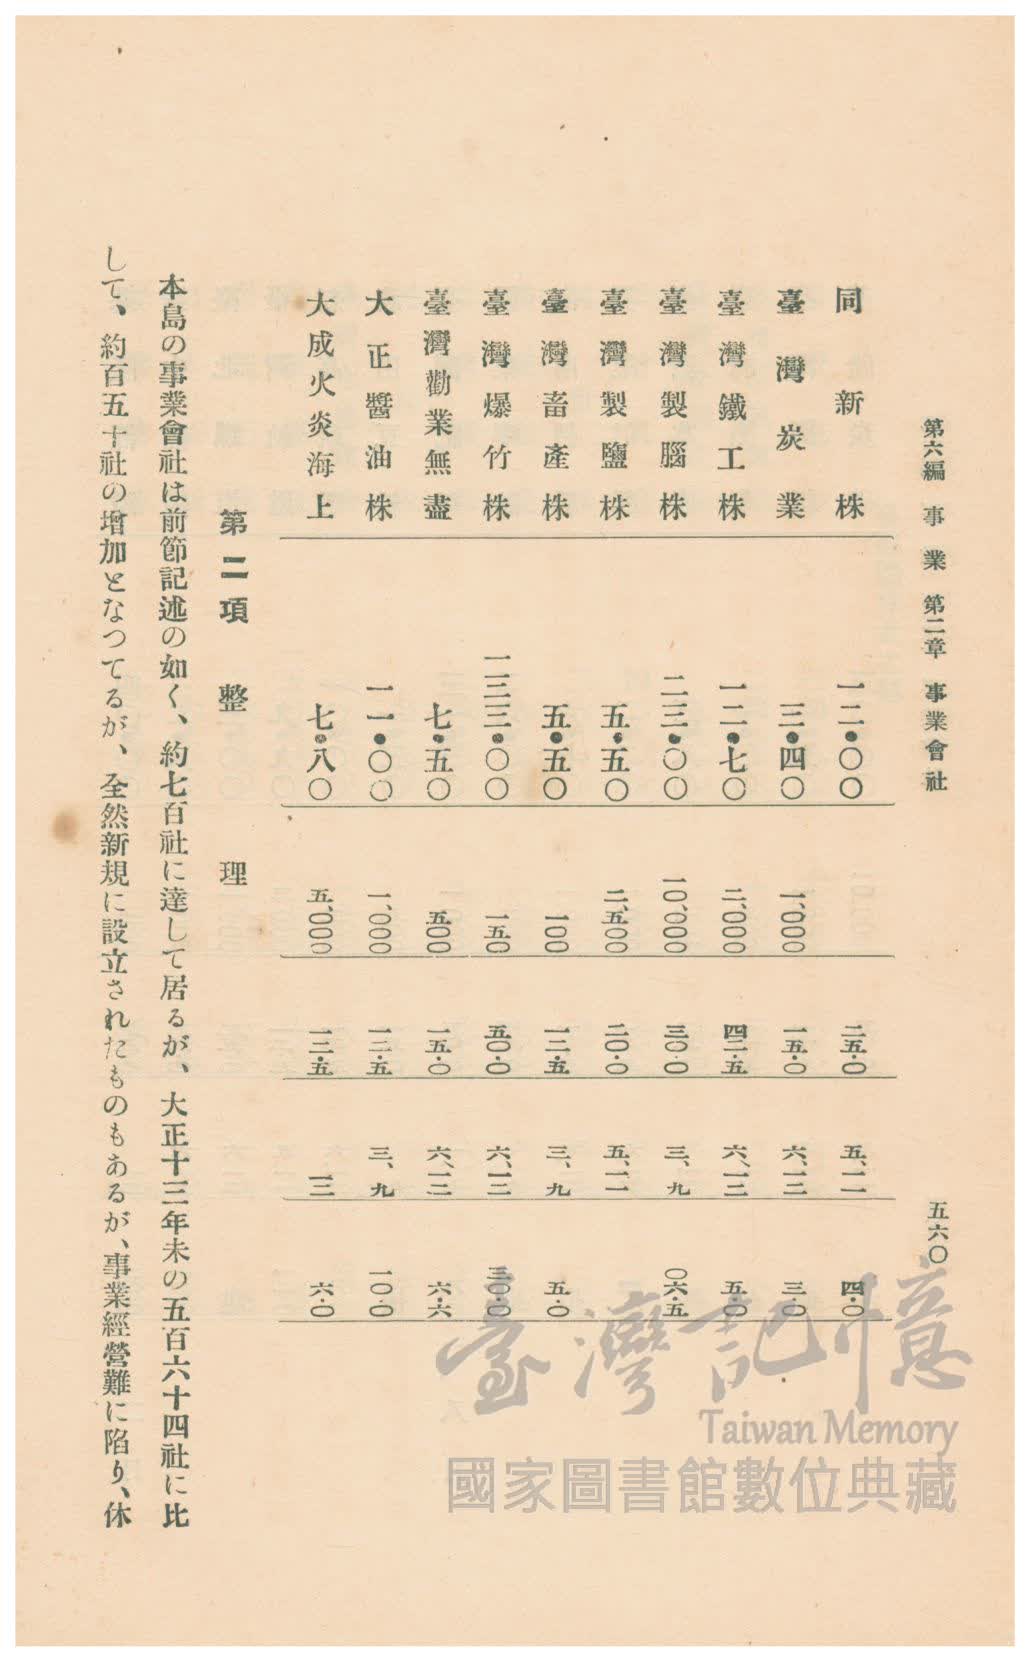 第六編 事業 第二章 事業會社 五六〇
同新株 一二・〇〇 二五・〇 五、一一 四・〇
臺灣炭業 三・四〇 一、〇〇〇 一五・〇 六、一二 三・〇
臺灣鐵工株 一二・七〇 二、〇〇〇 四二・五 六、一二 五・〇
臺灣製腦株 二三・〇〇 一〇、〇〇〇 三〇・〇 三、九 〇六・五
臺灣製鹽株 五・五〇 二、五〇〇 二〇・〇 五、一一
臺灣畜產株 五・五〇 一〇〇 一二・五 三、九 五・〇
臺灣爆竹株 一三三・〇〇 一五〇 五〇・〇 六、一二 三〇・〇
臺灣勸業無盡 七・五〇 五〇〇 一五・〇 六、一二 六・六
大正醬油株 一一・〇〇 一、〇〇〇 一二・五 三、九 一〇・〇
大成火炎海上 七・八〇 五、〇〇〇 一二・五 一二 六・〇
第二項 整理
本島の事業會社は前節記述の如く、約七百社に達して居るが、大正十三年末の五百六十四社に比
して、約百五十社の增加となつてるが、全然新規に設立されたものもあるが、事業經營難に陷り、休
臺灣記憶
Taiwan Memory
國家圖書館數位典藏